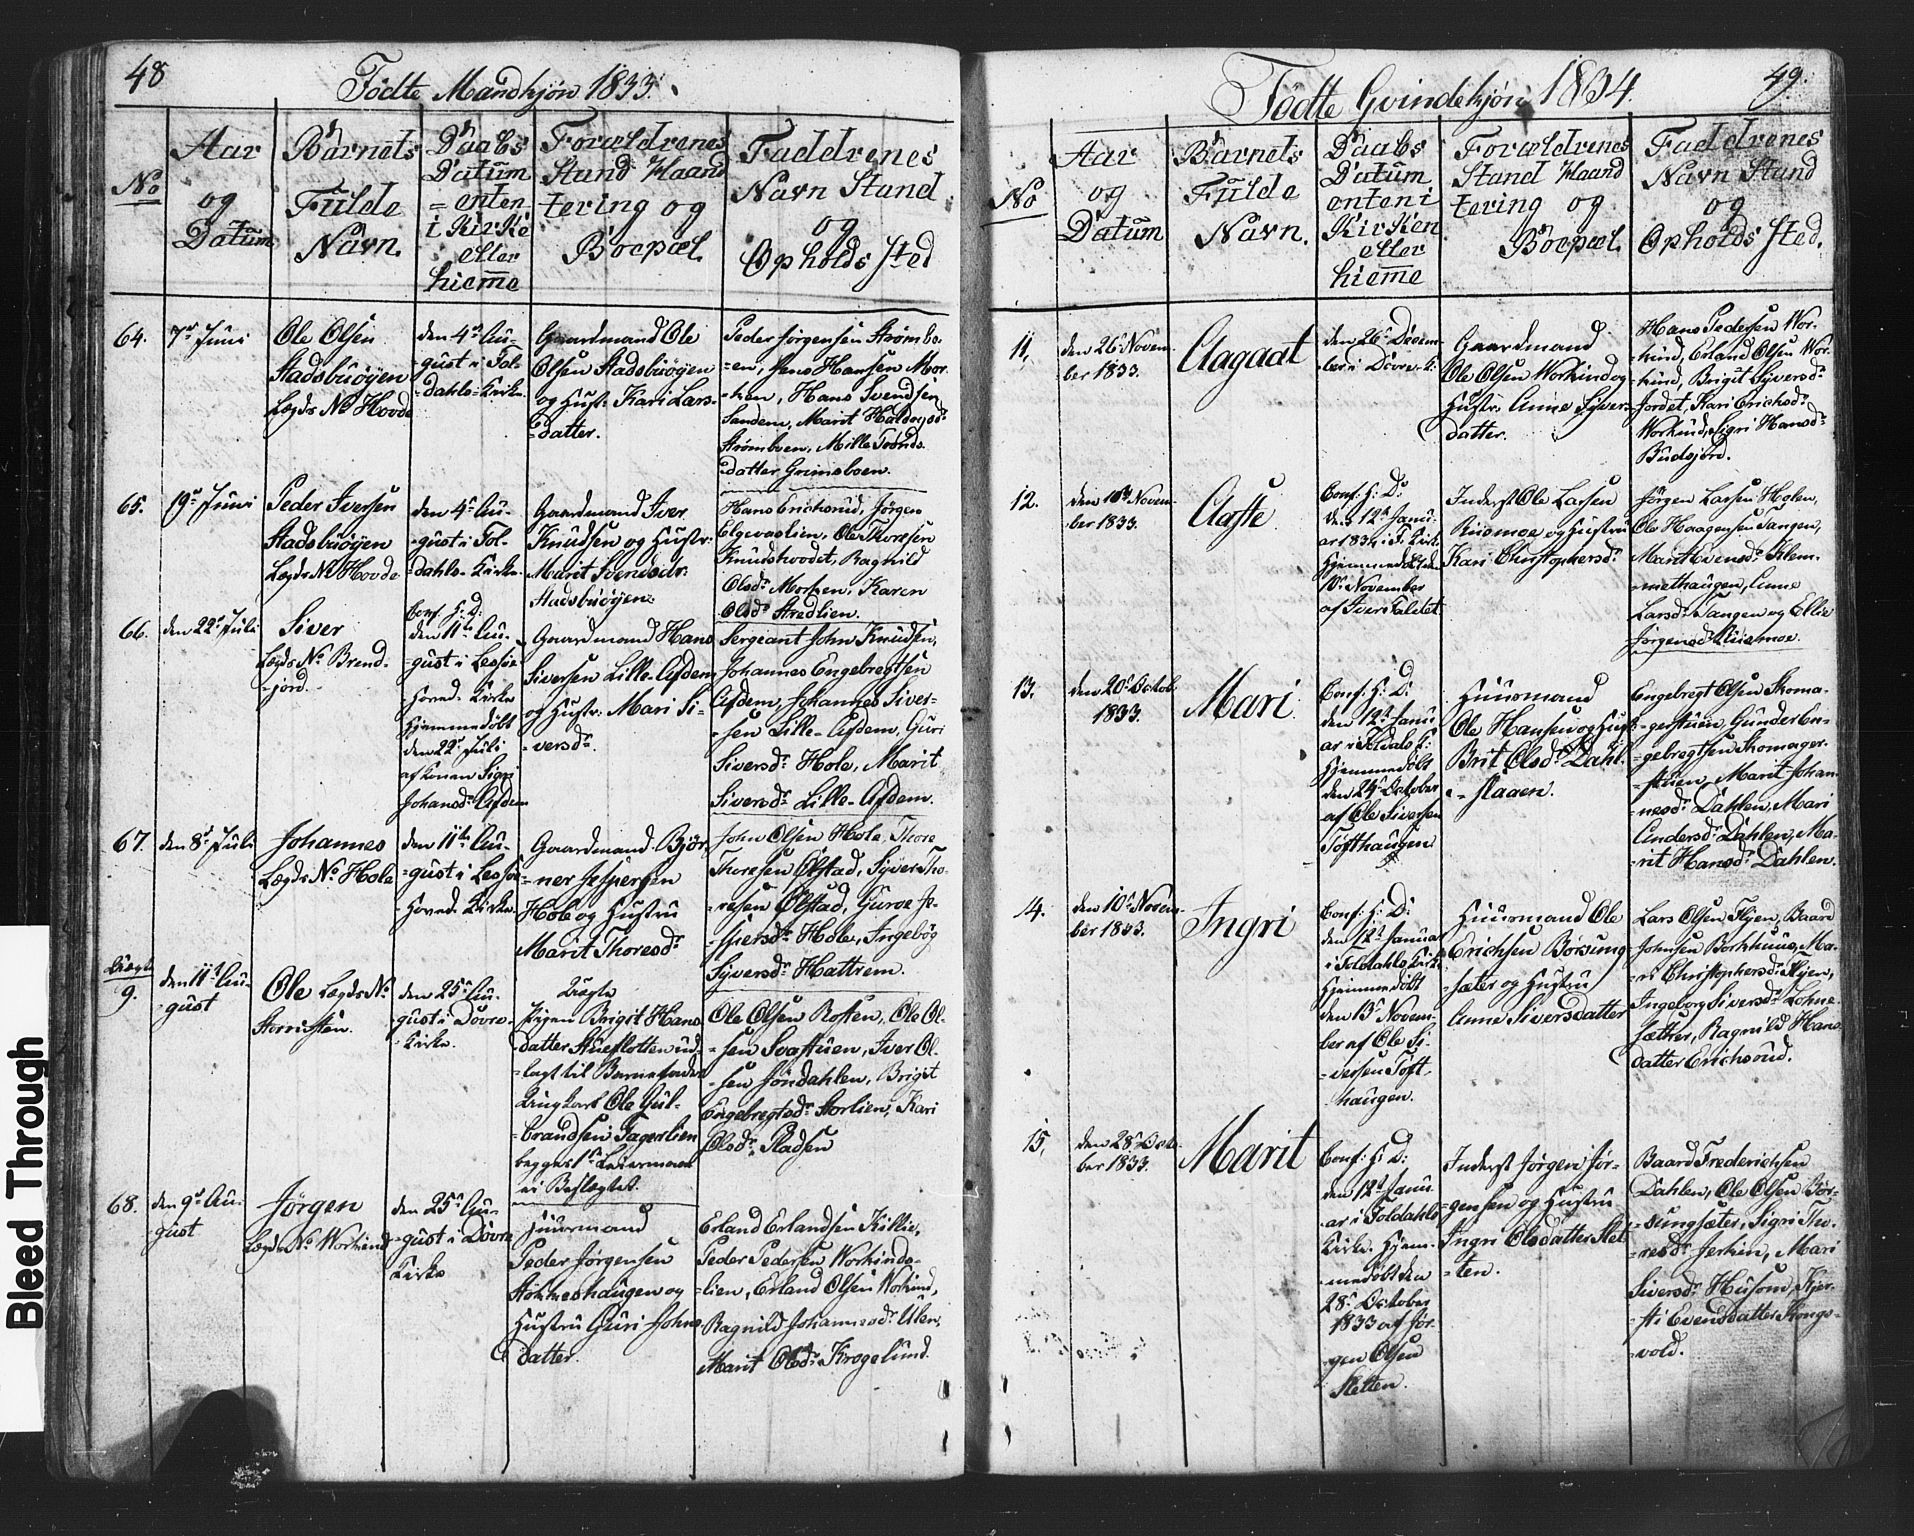 48
Födte Mandkjön 1833.
No
Aar
og
Datum
Barnets
Fulde
Navn.
Daabs
Datum
=enten
i Kirke
eller
hiemme
Forældrenes
Stand Haand
tering og
Boepæl.
Faddrenes
Navn Stand
og
Opholds Sted
64.
7de Juni
Ole Olsen
Stadsbuöyen
Lægds No Hovde
den 4de Au-
-gust i Fol-
-dahls-Kirke.
Gaardmand Ole
Olsen Stadsbuöyen
og Hust: Kari Lars-
datter.
Peder Jörgensen Strömbo-
-en, Jens Hansen Mor-
-ken, Hans Svendsen
Sandem, Marit Haldorsdr
Strömboen, Mille Trönds
datter Grimsboen.
65.
19de Juni
Peder Iversen
Stadsbuöyen
Lægds No Hovde
den 4de Au-
-gust i Fol-
-dahls-Kirke.
Gaardmand Iver
Knudsen og Hustr:
Marit Svendsdr:
Stadsbuöyen
Hans Erichsrud, Jörgen
Elgevaslien, Ole Thoresen
Knudshoodet, Ragnild
Olsdr Morken, Karen
Olsdr Stredlien.
66.
den 22de Juli
Siver
Lægds No Brend-
-jord.
Conf. H: D:
den 11te Au-
-gust i Lessöe
-Hoved-Kirke
Hjemmedöbt
den 22de Juli
af Konen Sigri
Johansdr Afdem
Gaardmand Hans
Siversen Lille-Afdem
og Hustr: Mari Si-
-versdr.
Sergeant John Knudsen,
Johannes Engebregtsen
Afdem, Johannes Siver-
-sen Lille-Afdem, Guri
Siversdr Hole, Marit
Siversdr Lille-Afdem.
67.
den 8de Juli
Johannes
Lægds No Hole
den 11te Au-
-gust i Lessöe
Hoved-Kirke
Gaardmand Björ-
-ner Jespersen
Hole og Hustru
Marit Thoresdr
John Olsen Hole, Thore
Thoresen Ölstad, Syver Tho-
-resen Ölstad, Guroe Je-
-spersdr Hole, Ingebög
Syversdr Hattrem.
Uægte
9.
den 11te Au-
gust
Ole Lægds No
Storrusten.
den 25de Au-
gust i Dovre-
-Kirke.
Uægte
Pigen Brigit Hans
datter Stueflotten ud-
-lagt til Barnefader
Ungkarl Ole Gul-
-brandsen Fagerlien
begges 1te Leiermaal
ei Beslægtet.
Ole Olsen Rosten, Ole Ol-
-sen Svartuen, Iver Ol-
-sen Jöndahlen, Brigit
Engebregtsdr Storlien, Kari
Olsdr Stadsen
68.
den 9de Au-
gust
Jörgen
Lægds No Workind
den 25de Au-
-gust i Dovre
Kirke
Huusmand
Peder Jörgensen
og
Hustru Guri Johns
datter.
Erland Erlandsen Killie,
Peder Pedersen Workinds-
-lien, Erland Olsen Workind,
Ragnild Johannesdr Ulen,
Marit Olsdr Krogelund.
Födte Qvindekjön 1834.
49.
No
Aar
og
Datum
Barnets
Fulde
Navn.
Daabs
Datum
enten i
Kirken
eller
hiemme
Forældrenes
Stand Haand
tering og
Boepæl.
Faddrenes
Navn Stand
og
Opholds Sted.
11,
den 26de Novem-
ber 1833.
Aagaat
den 26de Decem-
ber i Dovre-K:
Gaardmand
Ole Olsen Workind og
Hustr: Anne Syvers
datter.
Hans Pedersen Wor-
-kind, Erland Olsen Wor-
-kind, Brigit Syversdr
Jordet, Kari Erichsdr
Workind, Sigri Hansdr
Budsjord.
12.
den 10de Novem-
ber 1833.
Aaste
Conf: H: D:
den 12te Janu-
ar 1834 i F: Kirk
Hjemmedöbt den
10de November
af Iver Faldet
Inderst Ole Larsen
Ruismoe og Hustru
Kari Christophersdr
Jörgen Larsen Holen,
Ole Haagensen Tangen,
Marit Evensdr Klem-
-methaugen, Anne
Larsdr Tangen og Ellie
Jörgensdr Ruismoe.
13.
den 20de Octob.
1833.
Mari
Conf: H: D:
den 12te Janu-
ar i Foldals K:
Hjemmedöbt
den 24de October
af Ole Siversen
Tofthaugen
Huusmand
Ole Hansen og Hust
Brit Olsdr Dahl-
-slaaen.
Engebregt Olsen Skoma-
-gerstuen, Gunder En-
-gebregtsen Skomager-
-stuen, Marit Johan-
nesdr Dahlen, Mari
Andersdr Dahlen, Ma-
-rit Hansdr Dahlen.
14.
den 10de Novem-
ber 1833.
Ingri
Conf: H: D:
den 12te Januar
i Foldahls Kirke
Hjemmedöbt
den 13de Novem-
ber af Ole Si-
-versen Toft-
haugen.
Huusmand Ole
Erichsen Börsung-
-sæter og Hustru
Anne Siversdatter
Lars Olsen Flyen, Baard
Johnsen Borkhuus, Ma-
-ri Christophersdr Flyen,
Ingeborg Siversdr Lohne-
Sæther, Ragnild Hans
datter Erichsrud.
15,
den 28de Octo-
ber 1833.
Marit
Conf: H: D:
den 12te Janu-
ar i Foldahls
Kirke. Hjem-
-medöbt den
28de October
1833 af Jör-
-gen Olsen
Sletten.
Inderst Jörgen Jör-
-gensen og Hustru
Ingri Olsdatter Slet
-ten.
Baard Frederichsen
Dahlen, Ole Olsen Bör-
-sungsæter, Sigri Tho-
-resdr Jerkin, Mari
Siversdr Husom, Kjer-
-sti Evensdatter Kongs-
-vold.
Bleed Through